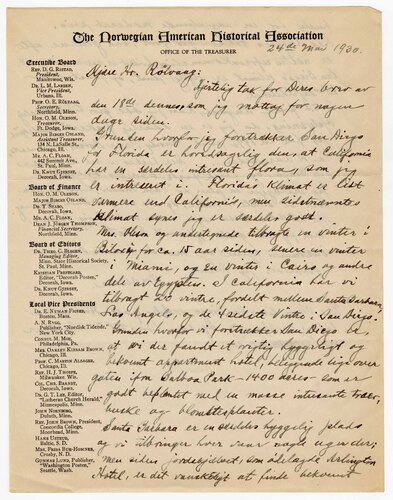 The Norwegian American Historical Association
OFFICE OF THE TREASURER
24de Mai 1930.
Executive Board
REV. D. G. RISTAD,
President,
Manitowoc, Wis.
DR. L. M. LARSEN,
Vice President,
Urbana, Ill.
PROF. O. E. RÖLVAAG,
Secretary,
Northfield, Minn.
HON. O. M. OLESON,
Treasurer,
Ft. Dodge, Iowa.
MAJOR BIRGER OSLAND,
Assistant Treasurer,
134 N. LaSalle St.,
Chicago, Ill.
MR. A. C. FLOAN,
St. Paul, Minn.
DR. KNUT GJERSET,
Decorah, Iowa.
Board of Finance
HON. O. M. OLESON,
MAJOR BIRGER OSLAND,
DR. T. STABO,
Decorah, Iowa.
MR. A. C. FLOAN,
DEAN J. JÖRGEN THOMPSON,
Financial Secretary,
Northfield, Minn.
Board of Editors
DR. THEO. C. BLEGEN,
Managing Editor,
Minn. State Historical Society,
St. Paul, Minn.
KRISTIAN PRESTGARD,
Editor, "Decorah Posten,"
Decorah, Iowa.
DR. KNUT GJERSET,
Decorah, Iowa.
Local Vice Presidents
Boston, Mass.
A. N. RYGG,
Publisher, "Nordisk Tidende,"
New York City.
CONSUL MOE,
Philadelphia, Pa.
MRS. OAKLEY KISSAM BROWN,
Chicago, Ill.
PROF. C. MARTIN ALSAGER,
Chicago, Ill.
REV. H. J. THORPE,
Milwaukee, Wis.
COL. CHR. BRANDT,
Decorah, Iowa.
DR. G. T. LEE, Editor,
"Lutheran Church Herald,"
Minneapolis, Minn.
JOHN NORNBORG,
Duluth, Minn.
REV. JOHN BROWN, President,
Concordia College,
Moorhead, Minn.
HANS USTRUD,
Baltic, S. D.
Crosby, N. D.
GUNNAR LUND, Publisher,
"Washington Posten,"
Seattle, Wash.
Kjære Hr. Rölvaag:
Hjertelig tak for Deres brev av
den 18de dennes, som jeg mottog for nogen
dage siden.
Grunden hvorfor jeg foretrækker San Diego
for Florida er hovedsagelig den, at California
har en særdeles intresant flora, som jeg
er intresert i. Floridas klimat er litt
varmere end Californias, men sidstnævntes
klimat synes jeg er særdeles godt.
Mrs. Oleson og undertegnede tilbragte en vinter i
Biloxi for ca. 15 aar siden, senere en vinter
i Miami, og en vinter i Cairo og andre
dele av Egypten. I California har vi
tilbragt 20 vintre, fordelt mellem Santa Barbara,
Los Angelos, og de 4 sidste vintre i San Diego.
Grunden hvorfor vi foretrækker San Diego er,
at vi der fandt et rigtig hyggeligt og
bekvemt appartment hotel, beliggende lige over
gaten ifra Balboa Park — 1400 acres — som er
godt beplantet med en masse intresante træer,
buske og blomsterplanter.
Santa Barbara er en særdeles hyggelig plads
og vi tilbringer hver vaar nogle uger der;
men siden jordskjælvet, som ödelagde Arlington
Hotel, er det vanskeligt at finde bekvemt